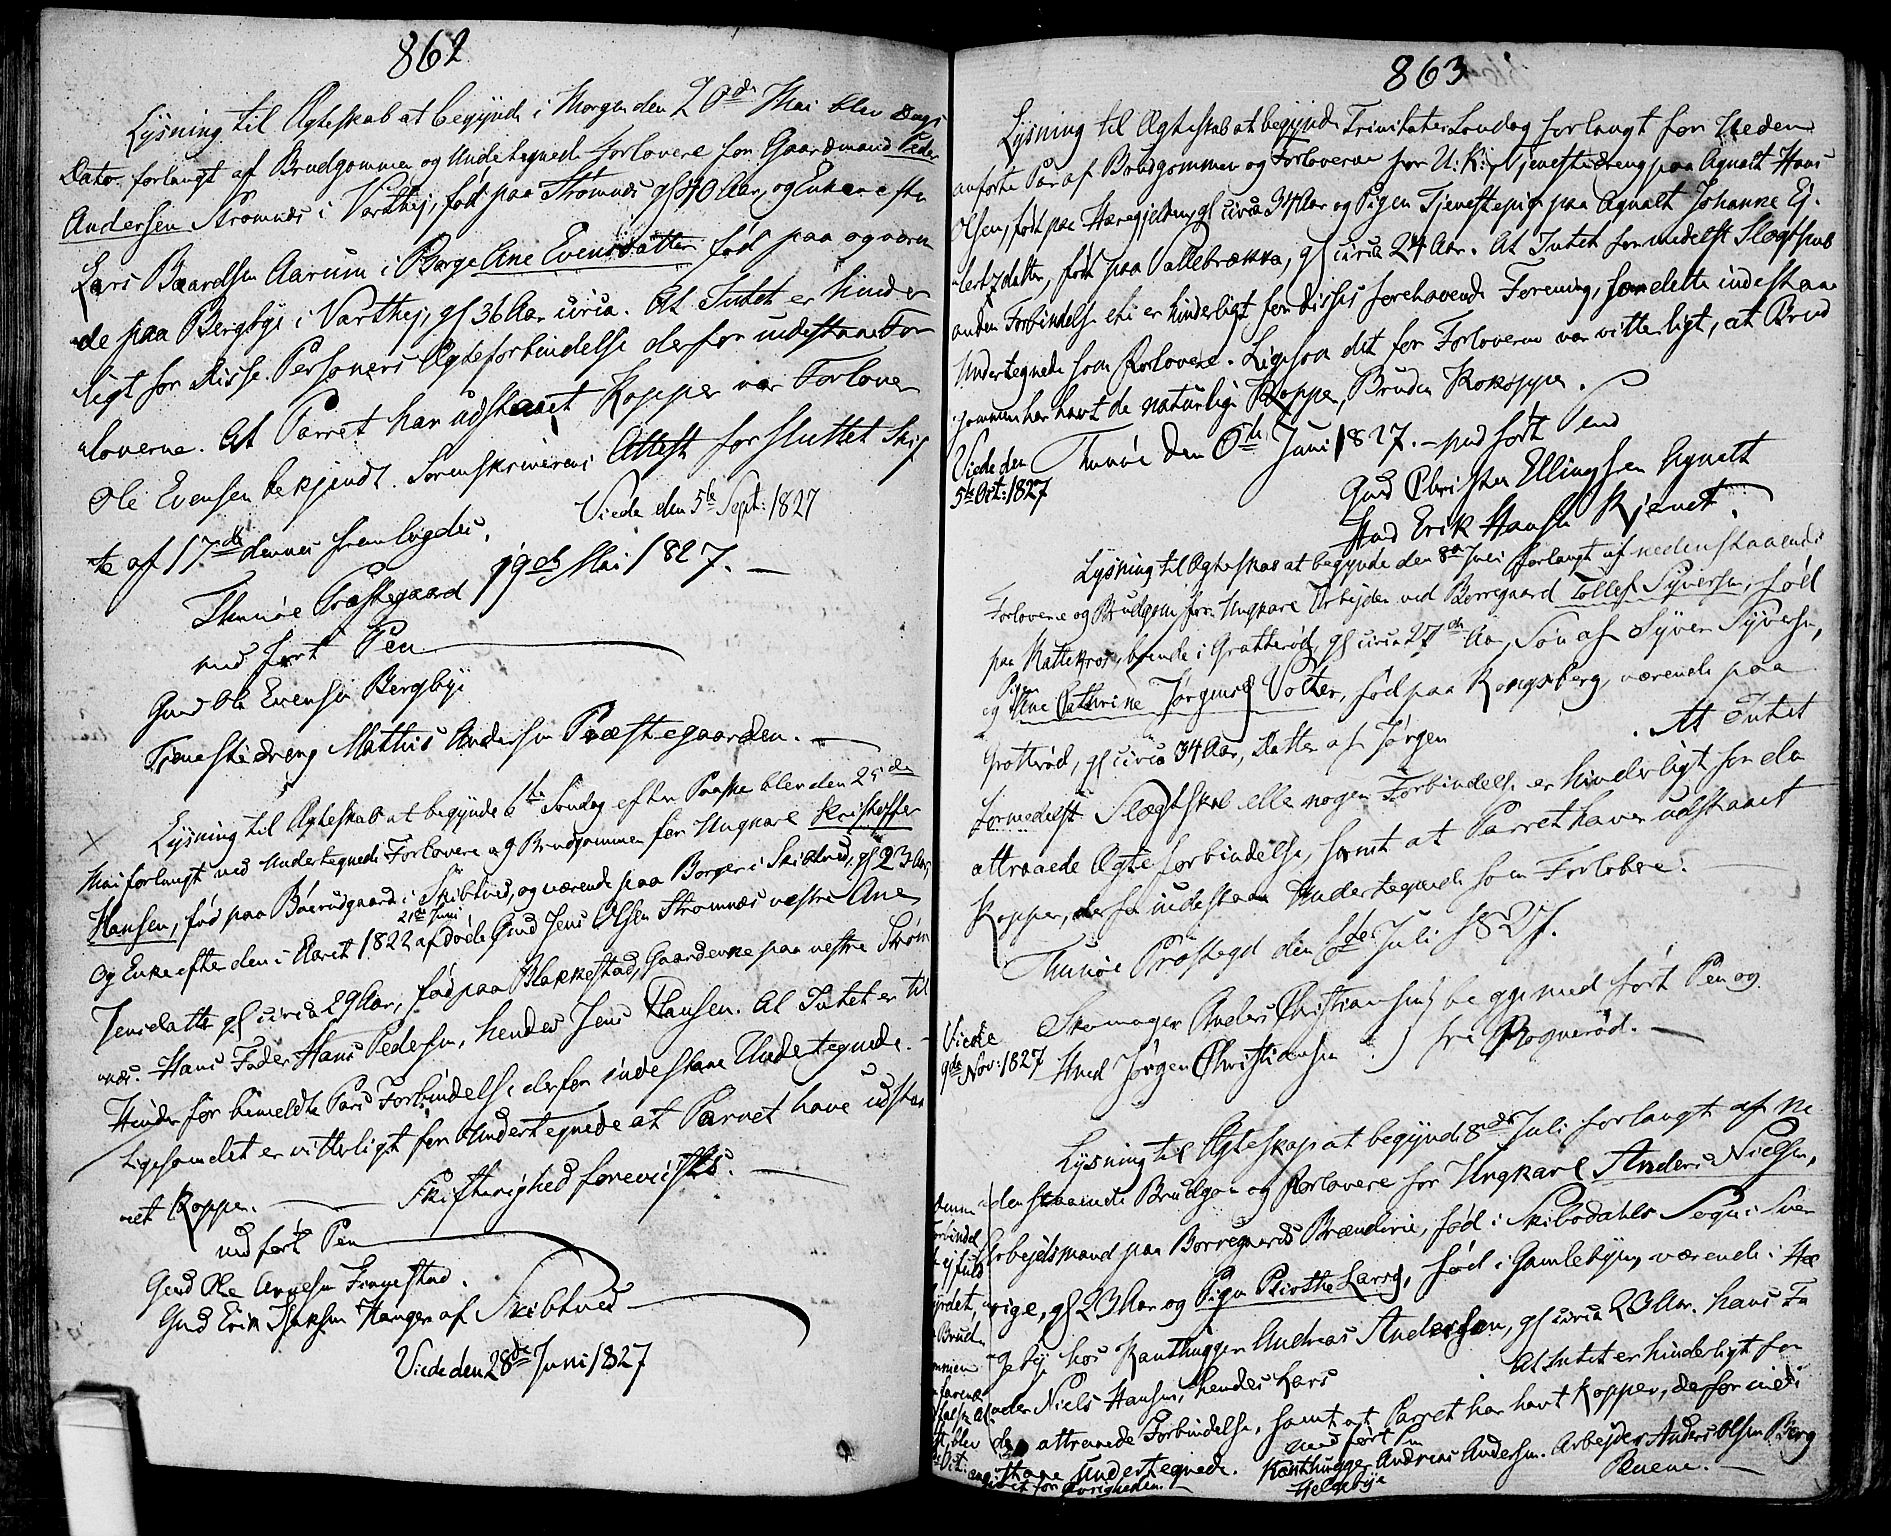 862
Lysning til Ægteskab at begynde i Morgen den 20de Mai blev Dags
Dato forlangt af Brudgommen og Undertegnede Forlovere for Gaardmand Peder
Andersen Strømnæs i Varthej, fød paa Strømnæs gl 40 Aar, og Enken efter
Lars Baardsen Aarum i Borge Ane Evensdatter fød paa og væren
de paa Bergbye i Varthej, gl 36 Aar circa. At Intet er hinder
ligt for disse Personers Ægteforbindelse derfor indestaae For
loverne. At Parret har udstaaet Kopper var Forlover
Ole Evensen bekjendt. Sorenskriverens Attest for sluttet Skif
te af 17de dennes fremlagdes. Viede den 5te Sept: 1827
Thunøe Præstegaard 19de Mai 1827. —
med ført Pen
Gmd Ole Evensen Bergbye
Tjenestedreng Mathis Andersen Præstegaarden. —
Lysning til Ægteskab at begynde 6te Søndag efter Paaske blev den 25de
Mai forlangt ved Undertegnede Forlovere og Brudgommen for Ungkarl Kristopher
Hansen, fød paa Bøerudgaard i Skibtved, og værende paa Borger i Skibtved, gl 23 Aar,
21de Juni
og Enke efter den i Aaret 1822 afdøde Gmd Jens Olsen Strømnæs vestre Ane
Jensdatter gl circa 29 Aar, fød paa Blakkestad, Gaardenke paa vestre Strøm
næs. Hans Fader Hans Pedersen, hendes Jens Hansen. At Intet er til
Hinder for bemeldte Pars Forbindelse derfor indestaae Undertegnede. —
Ligesom det er vitterligt for Undertegnede at Parret have udsta
aet Kopper. — Skifterighed forevistes. —
med ført Pen
Gmd Ole Arnesen Tingestad.
Gmd Erik Isaksen Hanger af Skibtved
Viede den 28de Juni 1827
863
Lysning til Ægteskab at begynde Trinitatis Søndag forlangt for Neden
anførte Par af Brudgommen og Forloverne for U.K. Tjenestedreng paa Agnalt Hans
Olsen, fød paa Hæregjelden, gl circa 34 Aar og Pigen Tjenestepige paa Agnalt Johanne Ej-
lertzdatter, fød paa Pallebrækka, gl circa 24 Aar. At Intet formedelst Slægtskab
anden Forbindelse eli er hinderligt for disses forehavende Forening, for dette indestaae
Undertegnede som Forlovere. Ligesom det for Forloverne var vitterligt, at Brud
gommen har havt de naturlige Kopper, Bruden Kokopper.
Viede den
5te Oct: 1827
Thunøe den 6te Juni 1827. — med ført Pen
Gmd Christen Ellingsen Agnalt
Hmd Erik Hansen Kjenet.
Lysning til Ægteskab at begynde den 8de Juli forlangt af nedenstaaende
Forlovere og Brudgom for Ungkarl Arbejder ved Borregaard Tollef Syversen, fød
paa Kattekros, boende i Gratterød, gl circa 27de Aar, Søn af Syver Syversen,
Pigen
og Ane Cathrine Jørgensd Volter, fød paa Kongsberg, værende paa
Grotterød, gl circa 34 Aar, Datter af Jørgen . At Intet
formedelst Slægtskab elle nogen Forbindelse er hinderligt for den
attraaede Ægteforbindelse, samt at Parret haver udstaaet
Kopper, derfor indestaae Undertegnede som Forlovere.
Thunøe Præstegd den 6te Juli 1827.
Skomager Anders Christiansen begge med ført Pen og
Viede
9de Nov: 1827
Hmd Jørgen Christiansen fri Rognerød. —
Lysning til Ægteskap at begynde 8de Juli forlangt af ne
denstaaende Brudgom og Forlovere for Ungkarl Anders Nielsen,
Arbejdsmand paa Borregaards Brænderie, fød i Skibsdahls Sogn i Sver
rige, gl 23 Aar og Pigen Birthe Larsd, fød i Gamlebyen, værende i Hæ
gebye hos Kanthugger Andreas Andersen, gl circa 23 Aar. hans Fa
der Niels Hansen, hendes Lars . At Intet er hinderligt for
den attraaede Forbindelse, samt at Parret har havt Kopper, derfor inde
staae Undertegnede.
med ført Pen
Kanthugger Andreas Andersen. Arbejder Anders Olsen Berg
Helgebye
Denne
Forbindel
Brud
blev
Oct: